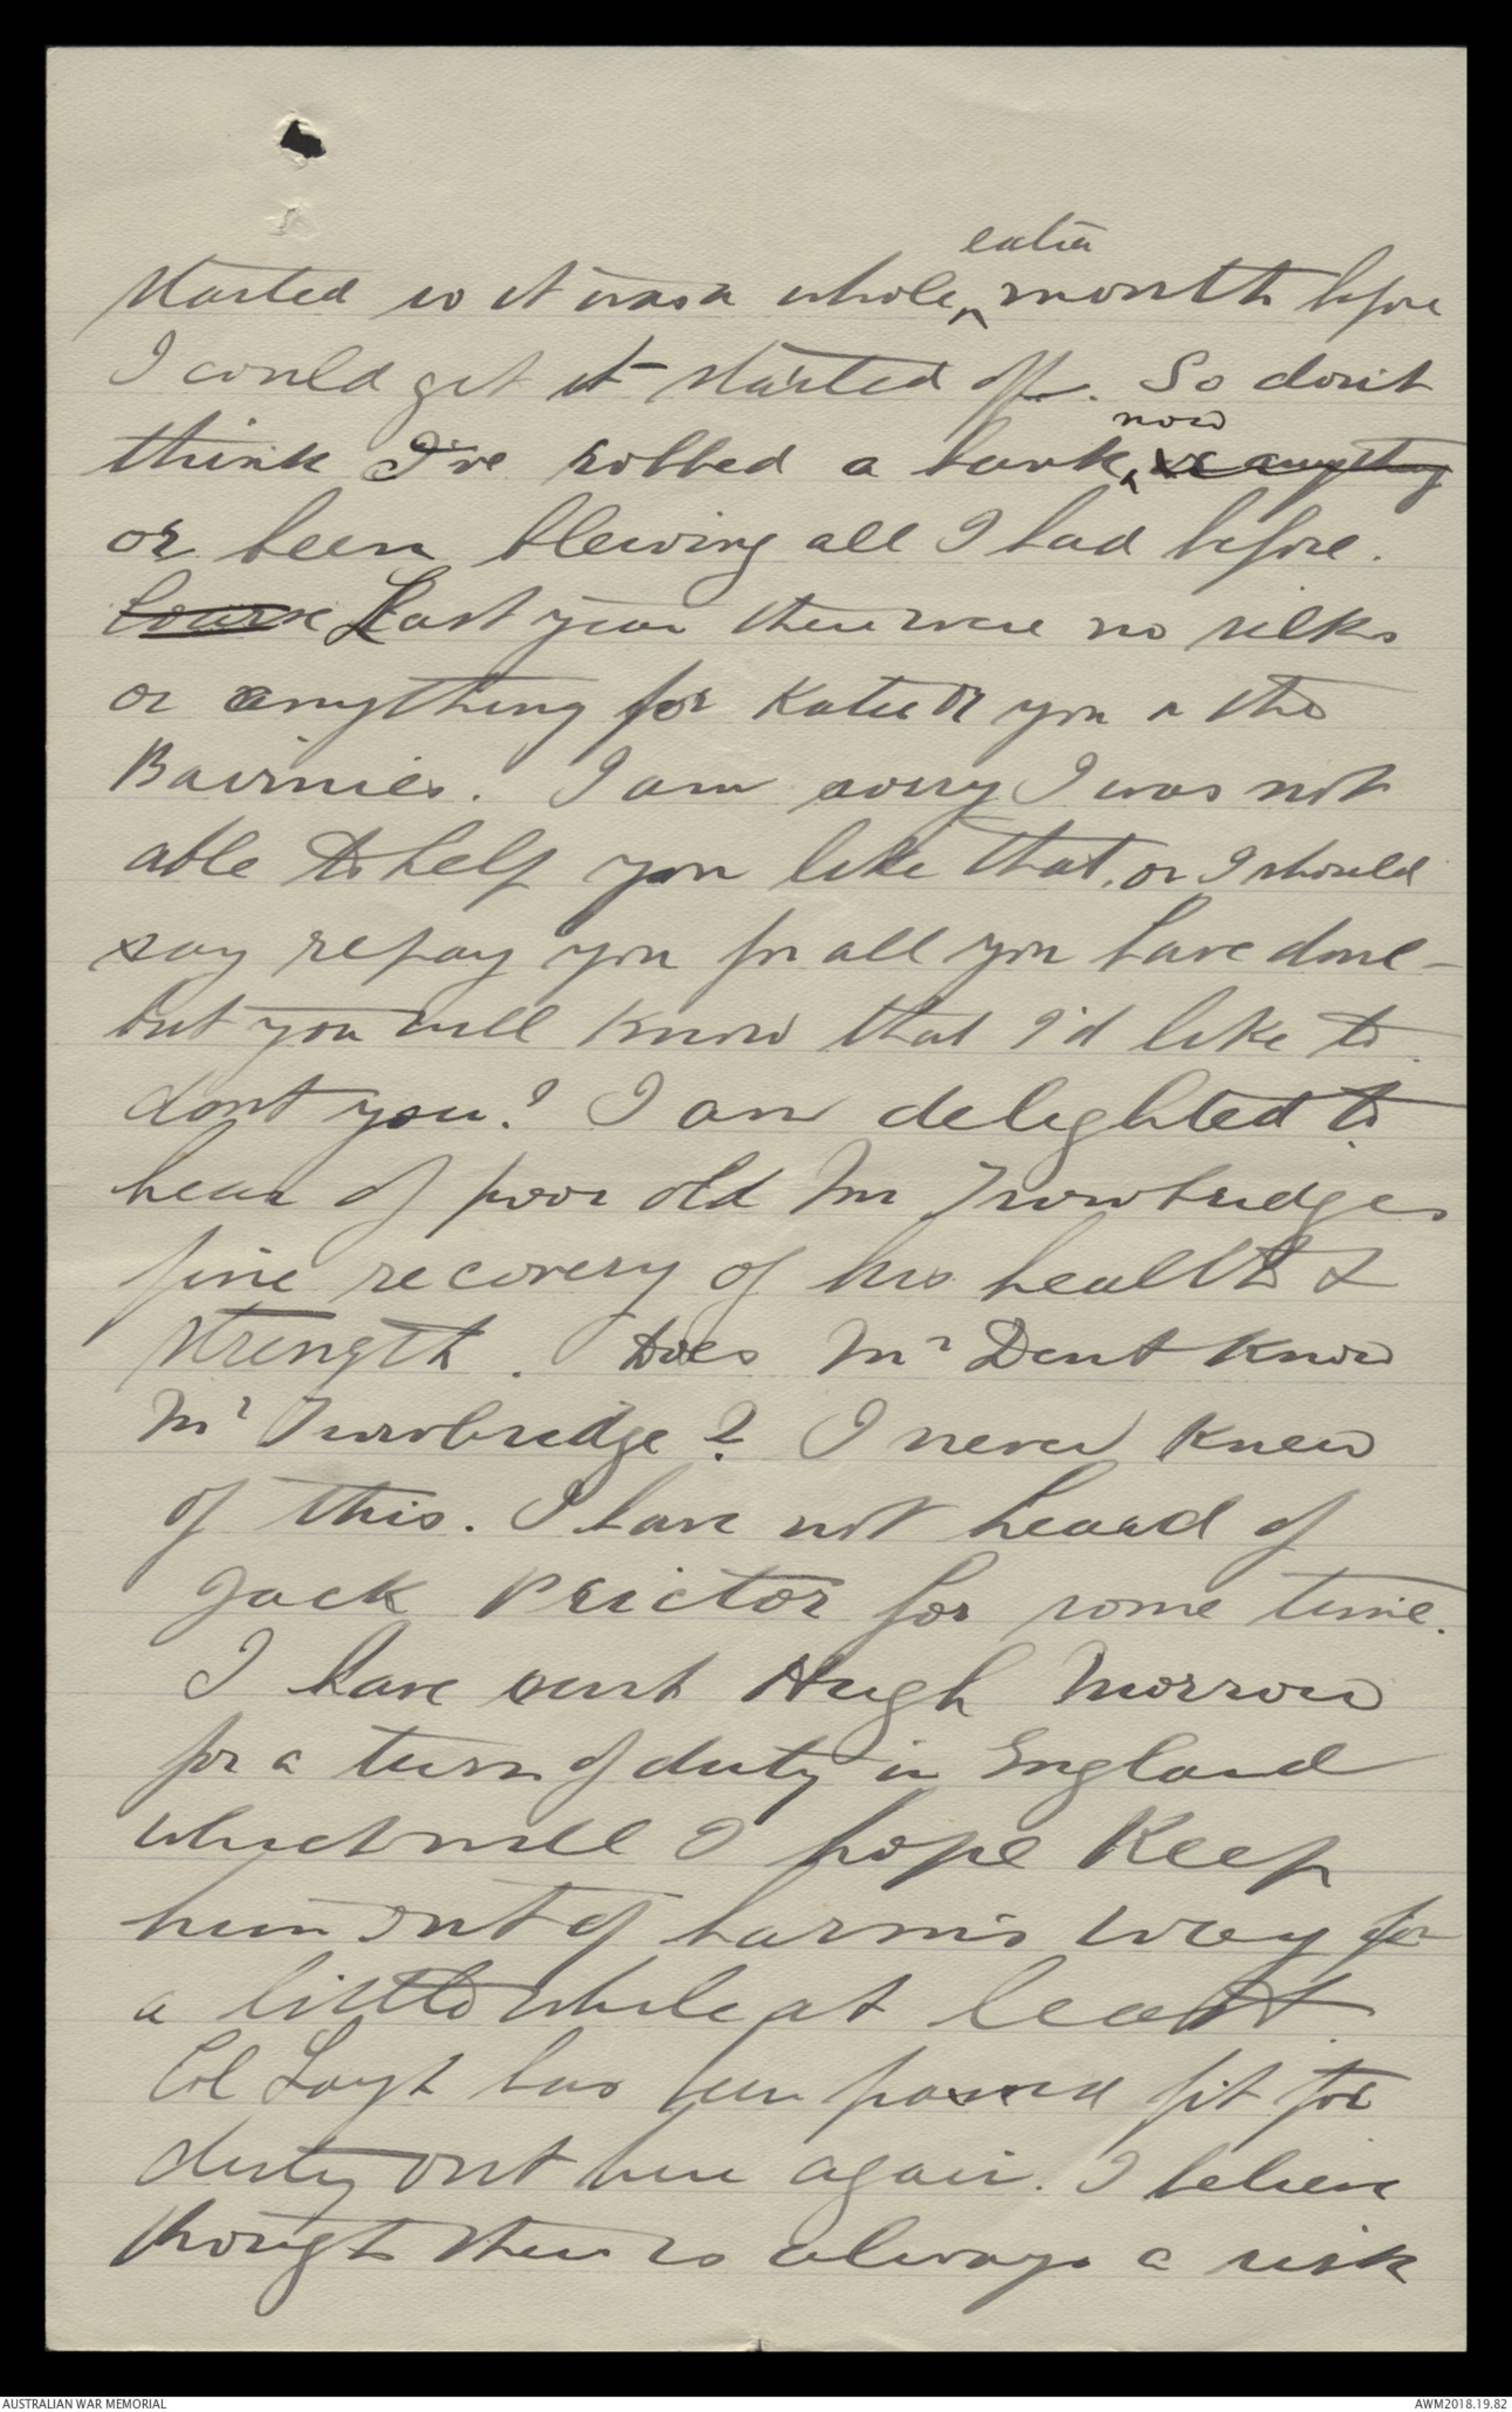 extra
started so it was a whole ^ month before
I could get it started off. So don't
now
think I've robbed a bank ^ or anything
or been blewing all I had before.
Course Last year there were no silks
or anything for Katie or you or the
Bairnies. I am sorry I was not
able to help you like that, or I should
say repay you for all you have done -
but you will know that I'd like to
dont you? I am delighted to
hear of poor old Mr Trowbridges
fine recovery of his health &
strength. Does Mr Dent know
Mr Trowbridge? I never knew
of this. I have not heard of
Jack Prictor for some time.
I have sent Hugh Morrow
for a turn of duty in England
which will I hope keep
him out of harm's way for
a little while at least.
Col Layh has been passed fit for
duty out here again. I believe
though there is always a risk
AUSTRALIAN WAR MEMORIAL
AWM2018.19.82